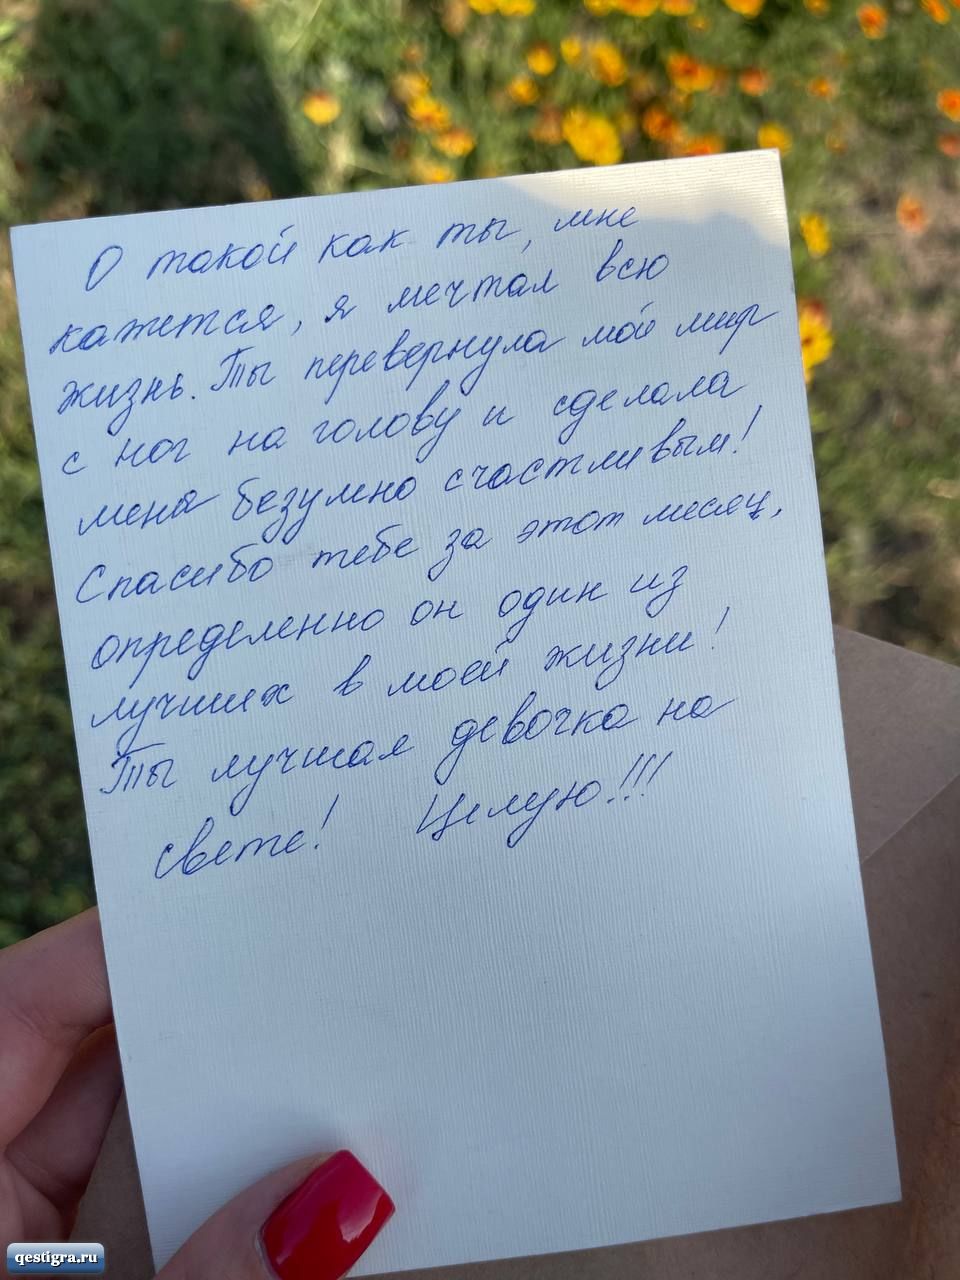 О такой как ты, мне
кажется, я мечтал всю
жизнь. Ты перевернула мой мир
с ног на голову и сделала
меня безумно счастливым!
Спасибо тебе за этот месяц,
определенно он один из
лучших в моей жизни!
Ты лучшая девочка на
свете! Целую!!!
qestigra.ru